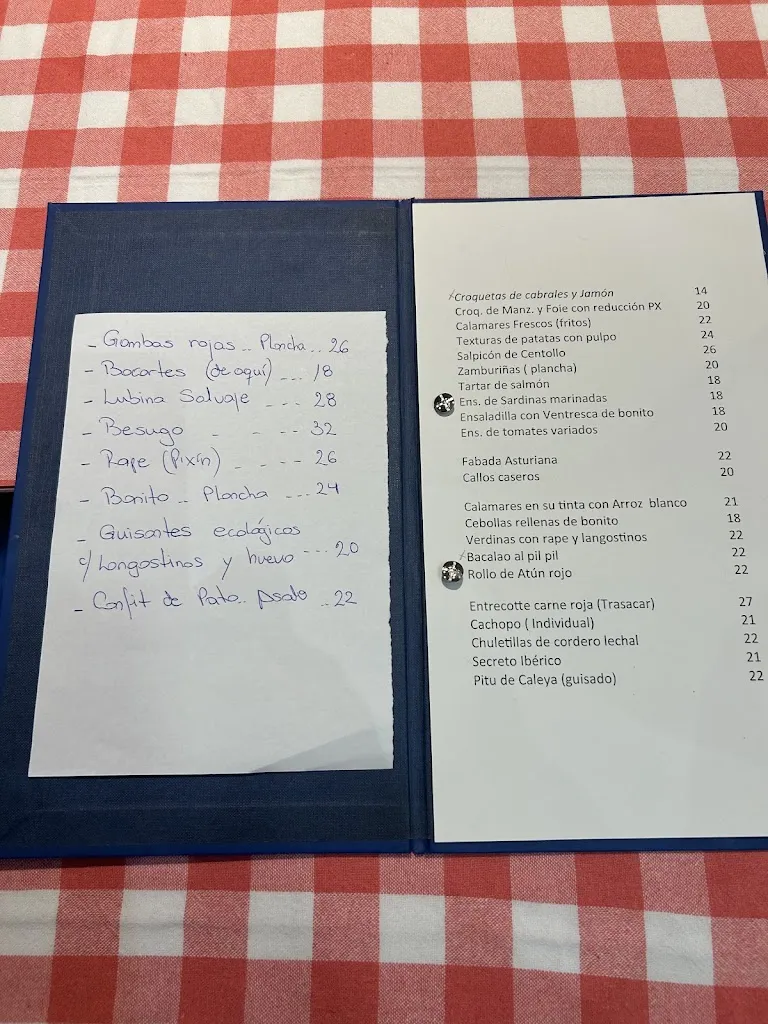 - Gambas rojas .. Plancha .. 26
- Bocartes (de aquí) ... 18
- Lubina Salvaje ... 28
- Besugo - - - - 32
- Rape (Pixín) - - -- 26
- Bonito .. Plancha ... 24
- Guisantes ecológicos
c/ Langostinos y huevo --- 20
- Confit de Pato.. Asado .. 22
Croquetas de cabrales y Jamón 14
Croq. de Manz. y Foie con reducción PX 20
Calamares Frescos (fritos) 22
Texturas de patatas con pulpo 24
Salpicón de Centollo 26
Zamburiñas ( plancha) 20
Tartar de salmón 18
Ens. de Sardinas marinadas 18
Ensaladilla con Ventresca de bonito 18
Ens. de tomates variados 20
Fabada Asturiana 22
Callos caseros 20
Calamares en su tinta con Arroz blanco 21
Cebollas rellenas de bonito 18
Verdinas con rape y langostinos 22
Bacalao al pil pil 22
Rollo de Atún rojo 22
Entrecotte carne roja (Trasacar) 27
Cachopo ( Individual) 21
Chuletillas de cordero lechal 22
Secreto Ibérico 21
Pitu de Caleya (guisado) 22